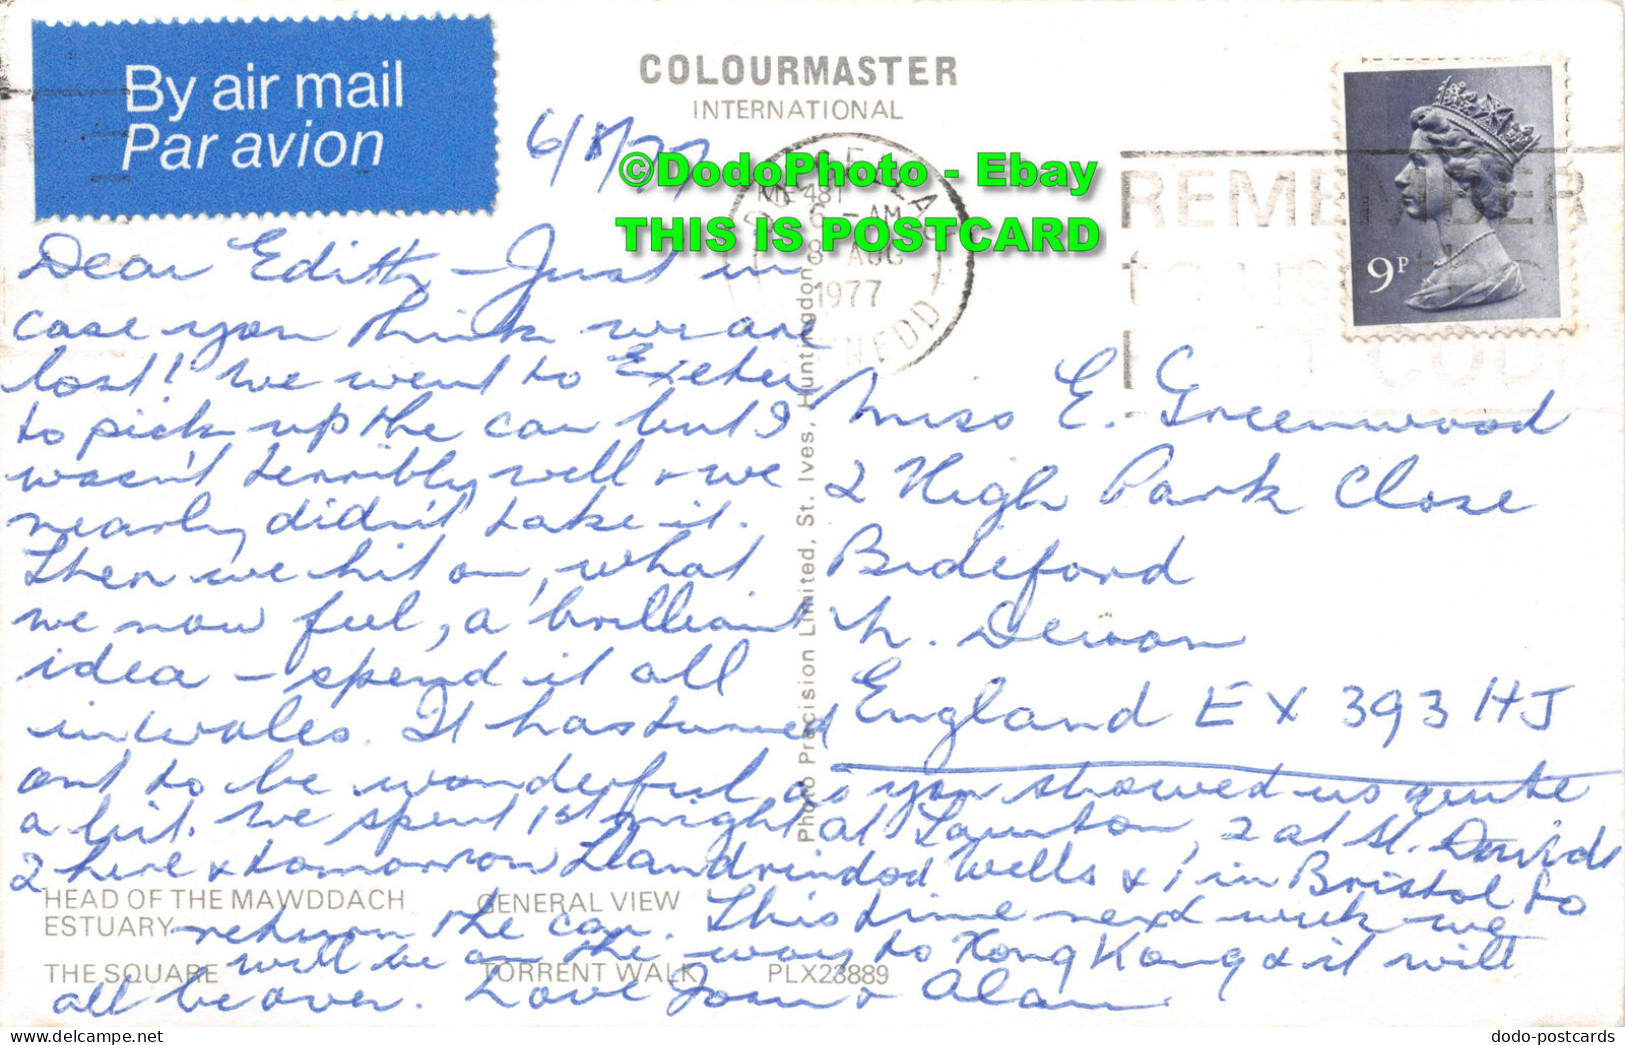 By air mail
Par avion
COLOURMASTER
INTERNATIONAL
6/8/77
©DodoPhoto - Ebay
THIS IS POSTCARD
ME 481
5 - AM
8 AUG
1977
REMEMBER
to use the
POST CODE
9P
Dear Edith - Just in
case you think we are
lost! We went to Exeter
to pick up the car but I
wasn't terribly well & we
nearly didn't take it.
Then we hit on, what
we now feel, a brilliant
idea - spend it all
in Wales. It has turned
out to be wonderful as you showed us quite
a bit. We spent 1st night at Taunton, 2 at St. Davids
2 here & tomorrow Llandrindod Wells & 1 in Bristol to
return the car. This time next week we
will be on the way to Hong Kong & it will
all be over. Love Joan & Alan.
Miss E. Greenwood
2 High Park Close
Bideford
N. Devon
England EX 393 HJ
Photo Precision Limited, St. Ives, Huntingdon
HEAD OF THE MAWDDACH
ESTUARY
GENERAL VIEW
THE SQUARE
TORRENT WALK
PLX23889
dodo-postcards